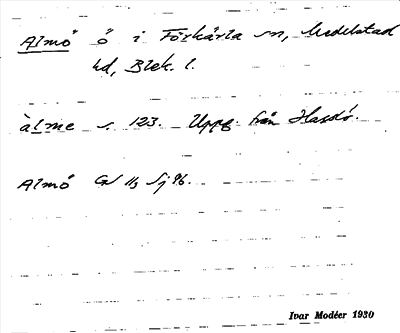 Almö ö i Förkärla sn, Medelstad
hd, Blek. l.
àlme s. 123. Uppg. från Hasslö.
Almö GV
Ivar Modéer 1930